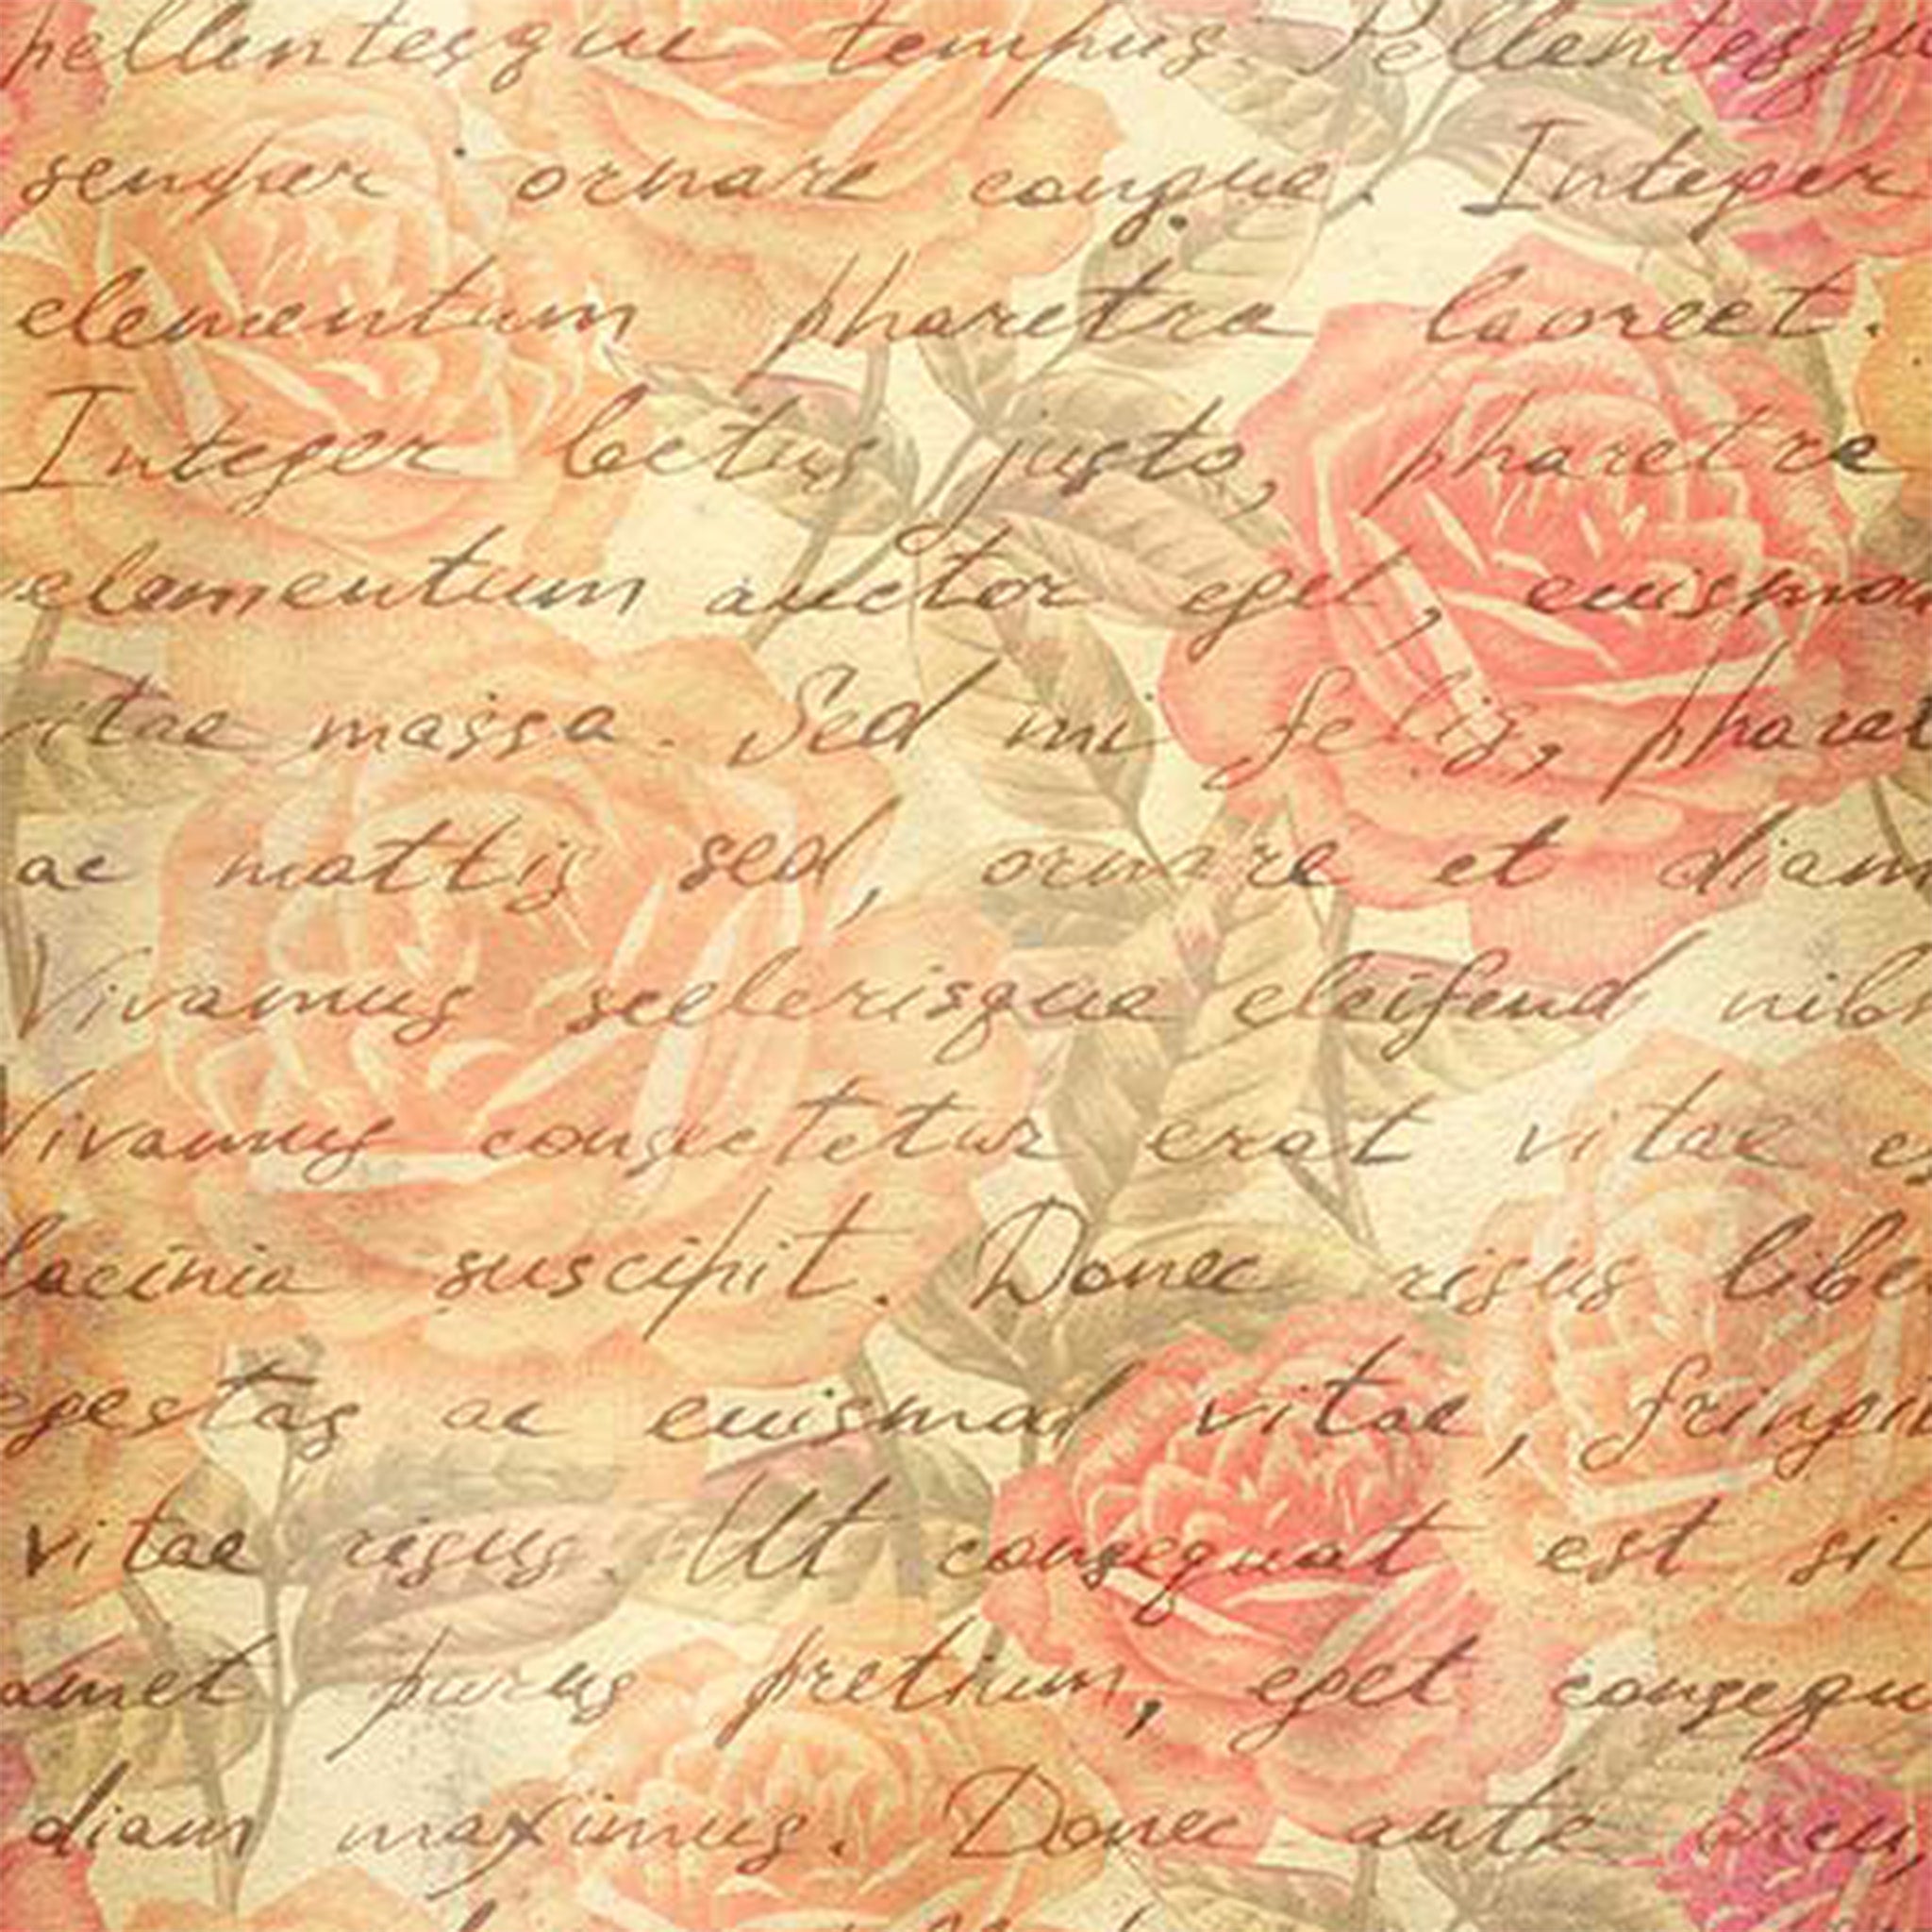 pellentesque tempus. Pellentesqu
semper ornare congue. Integer
elementum pharetra laoreet.
Integer lectus justo, pharetre
elementum auctor eget, euismo
vitae massa. Sed mi felis, pharet
ac mattis sed, ornare et diam
Vivamus scelerisque eleifend nibh
Vivamus consectetur erat vitae es
lacinia suscipit. Donec risus libe
egestas ac euismod vitae, fringi
vitae risus. Ut consequat est sit
amet purus pretium, eget consequ
diam maximus. Donec ante arcu,